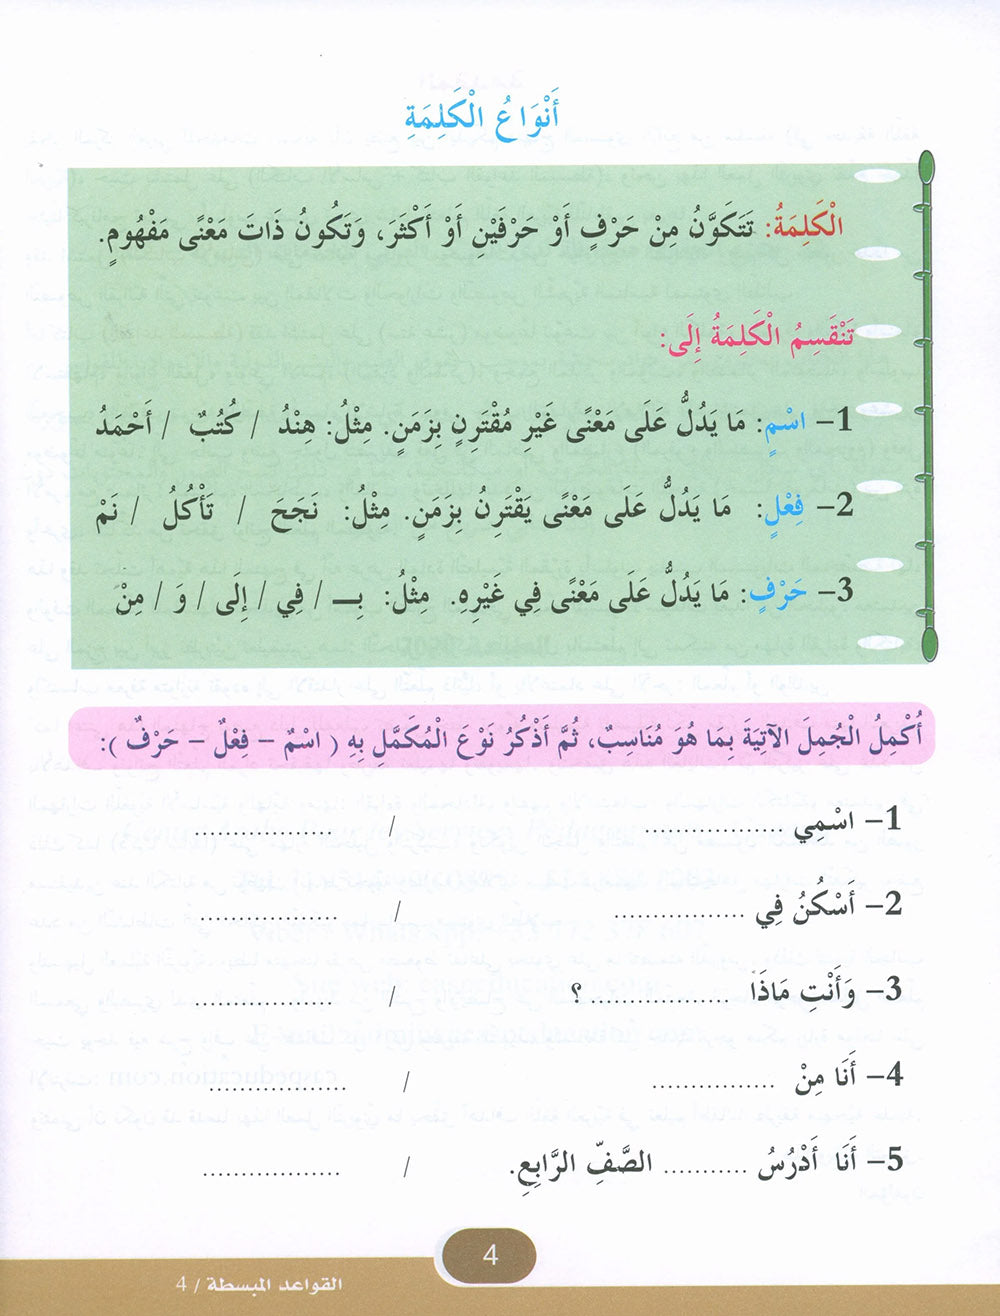 أَنْوَاعُ الْكَلِمَةِ
الْكَلِمَةُ: تَتَكَوَّنُ مِنْ حَرْفٍ أَوْ حَرْفَيْنِ أَوْ أَكْثَرَ، وَتَكُونُ ذَاتَ مَعْنًى مَفْهُومٍ.
تَنْقَسِمُ الْكَلِمَةُ إِلَى:
1- اسْمٍ: مَا يَدُلُّ عَلَى مَعْنًى غَيْرِ مُقْتَرِنٍ بِزَمَنٍ. مِثْلُ: هِنْدُ / كُتُبٌ / أَحْمَدُ
2- فِعْلٍ: مَا يَدُلُّ عَلَى مَعْنًى يَقْتَرِنُ بِزَمَنٍ. مِثْلُ: نَجَحَ / تَأْكُلُ / نَمْ
3- حَرْفٍ: مَا يَدُلُّ عَلَى مَعْنًى فِي غَيْرِهِ. مِثْلُ: بِـ / فِي / إِلَى / وَ / مِنْ
أُكْمِلُ الْجُمِلَ الآتِيَةَ بِمَا هُوَ مُنَاسِبٌ، ثُمَّ أَذْكُرُ نَوْعَ المُكَمَّلِ بِهِ ( اسْمٌ - فِعْلٌ - حَرْفٌ ):
1- اسْمِي .................... / ....................
2- أَسْكُنُ فِي .................... / ....................
3- وَأَنْتِ مَاذَا .................... ؟ / ....................
4- أَنَا مِنْ .................... / ....................
5- أَنَا أَدْرُسُ ............ الصَّفِّ الرَّابِعِ. / ....................
4
القواعد المبسطة / 4